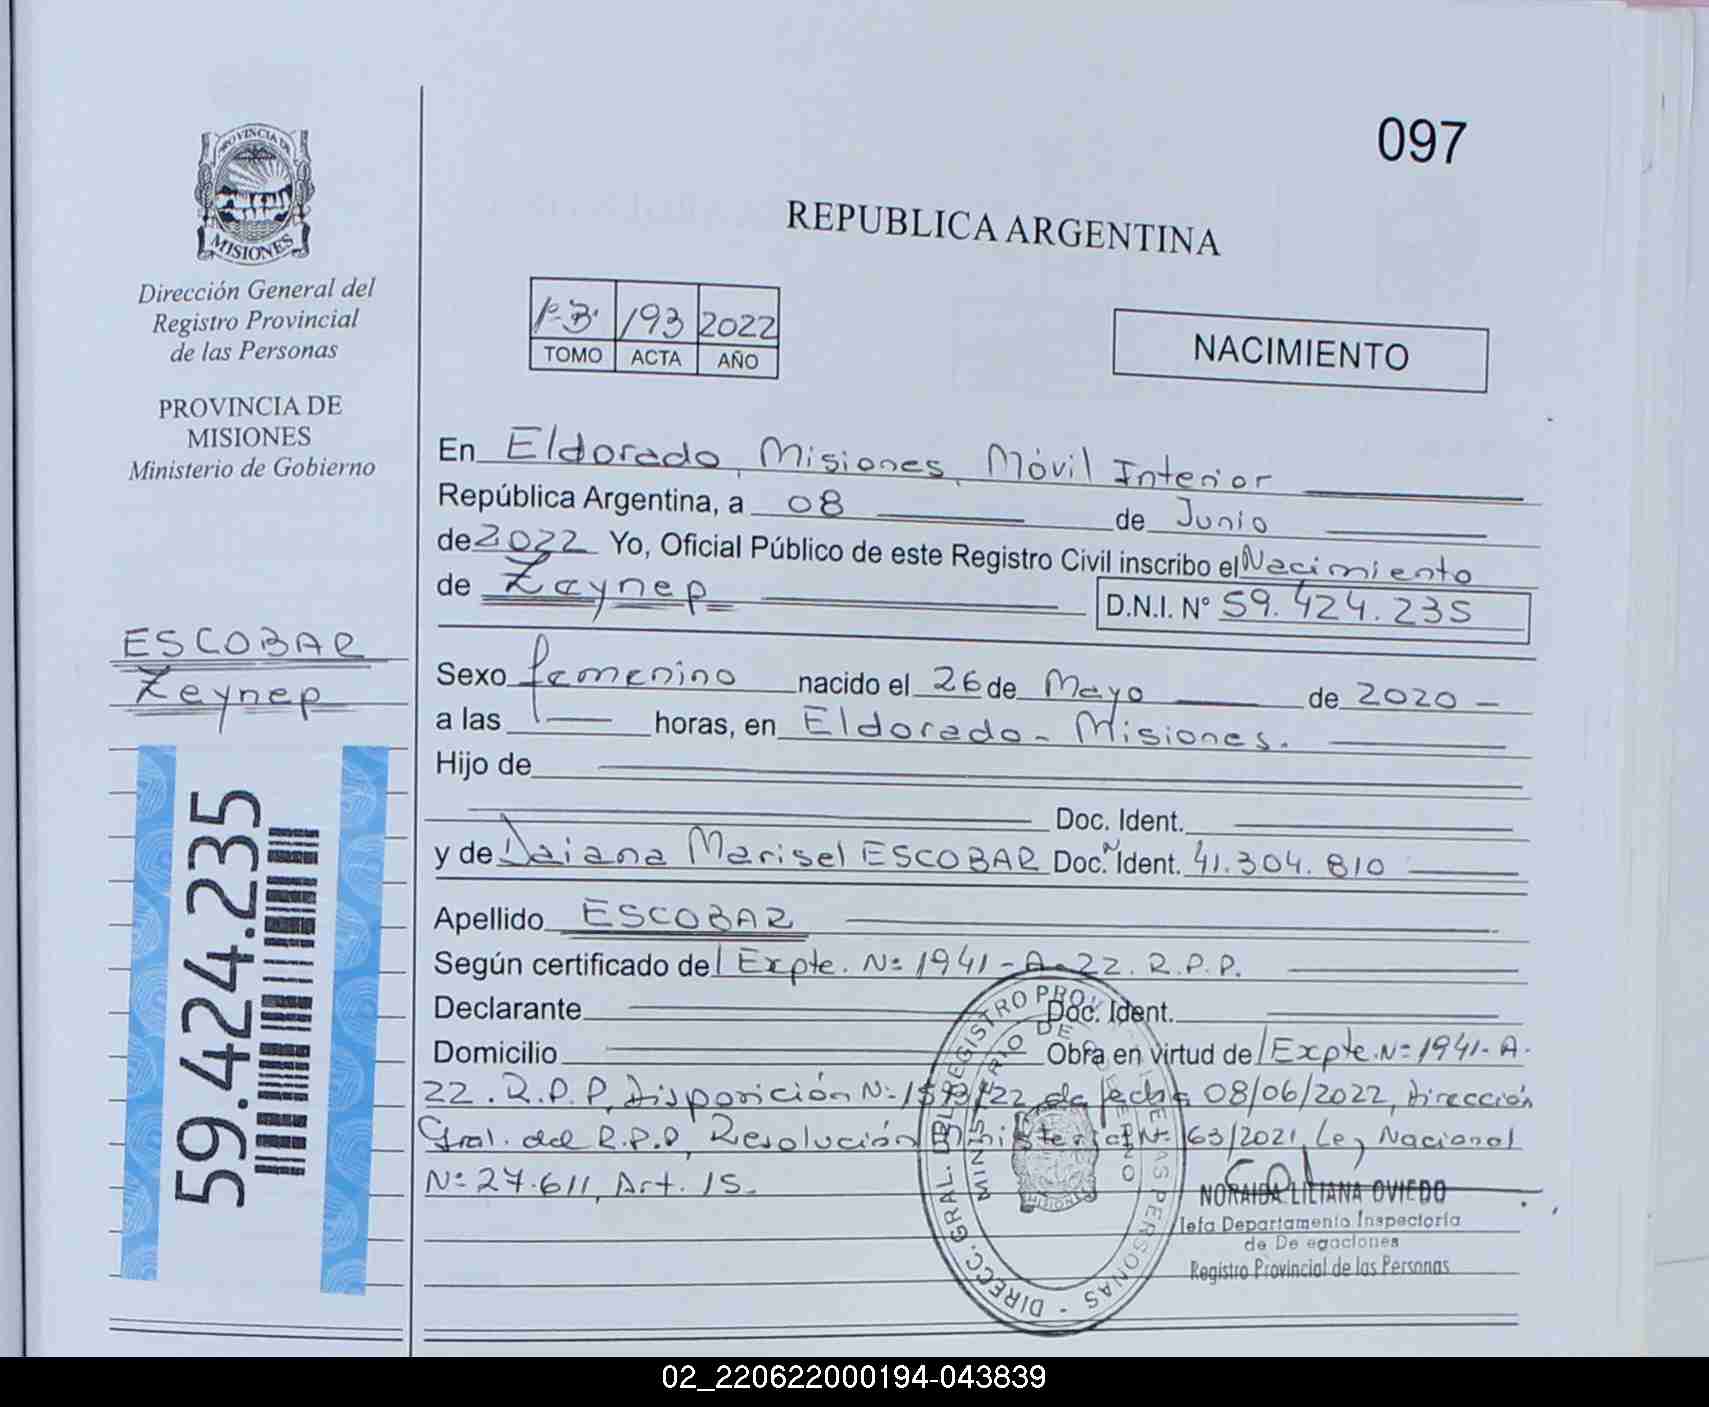 097
PROVINCIA DE
MISIONES
Dirección General del
Registro Provincial
de las Personas
PROVINCIA DE
MISIONES
Ministerio de Gobierno
ESCOBAR
Zeynep
59.424.235
REPUBLICA ARGENTINA
193 2022
TOMO ACTA AÑO
NACIMIENTO
En Eldorado, Misiones, Móvil Interior
República Argentina, a 08 de Junio
de 2022 Yo, Oficial Público de este Registro Civil inscribo el Nacimiento
de Zeynep D.N.I. N° 59.424.235
Sexo femenino nacido el 26 de Mayo de 2020 -
a las horas, en Eldorado - Misiones.
Hijo de
Doc. Ident.
y de Daiana Marisel ESCOBAR Doc. N Ident. 41.304.810
Apellido ESCOBAR
Según certificado del Expte. Nº 1941-A-22. R.P.P.
Declarante Doc. Ident.
Domicilio Obra en virtud del Expte. Nº 1941-A-
22. R.P.P, Disposición Nº /22 de fecha 08/06/2022, Dirección
Gral. del R.P.P, Resolución Ministerial Nº 63/2021, Ley Nacional
Nº 27.611, Art. 15.
DIRECC. GRAL. DEL REGISTRO PROV. DE LAS PERSONAS -
MINISTERIO DE GOBIERNO
MISIONES
NORAIDA LILIANA OVIEDO
Jefa Departamento Inspectoria
de De egaciones
Registro Provincial de las Personas
02_220622000194-043839